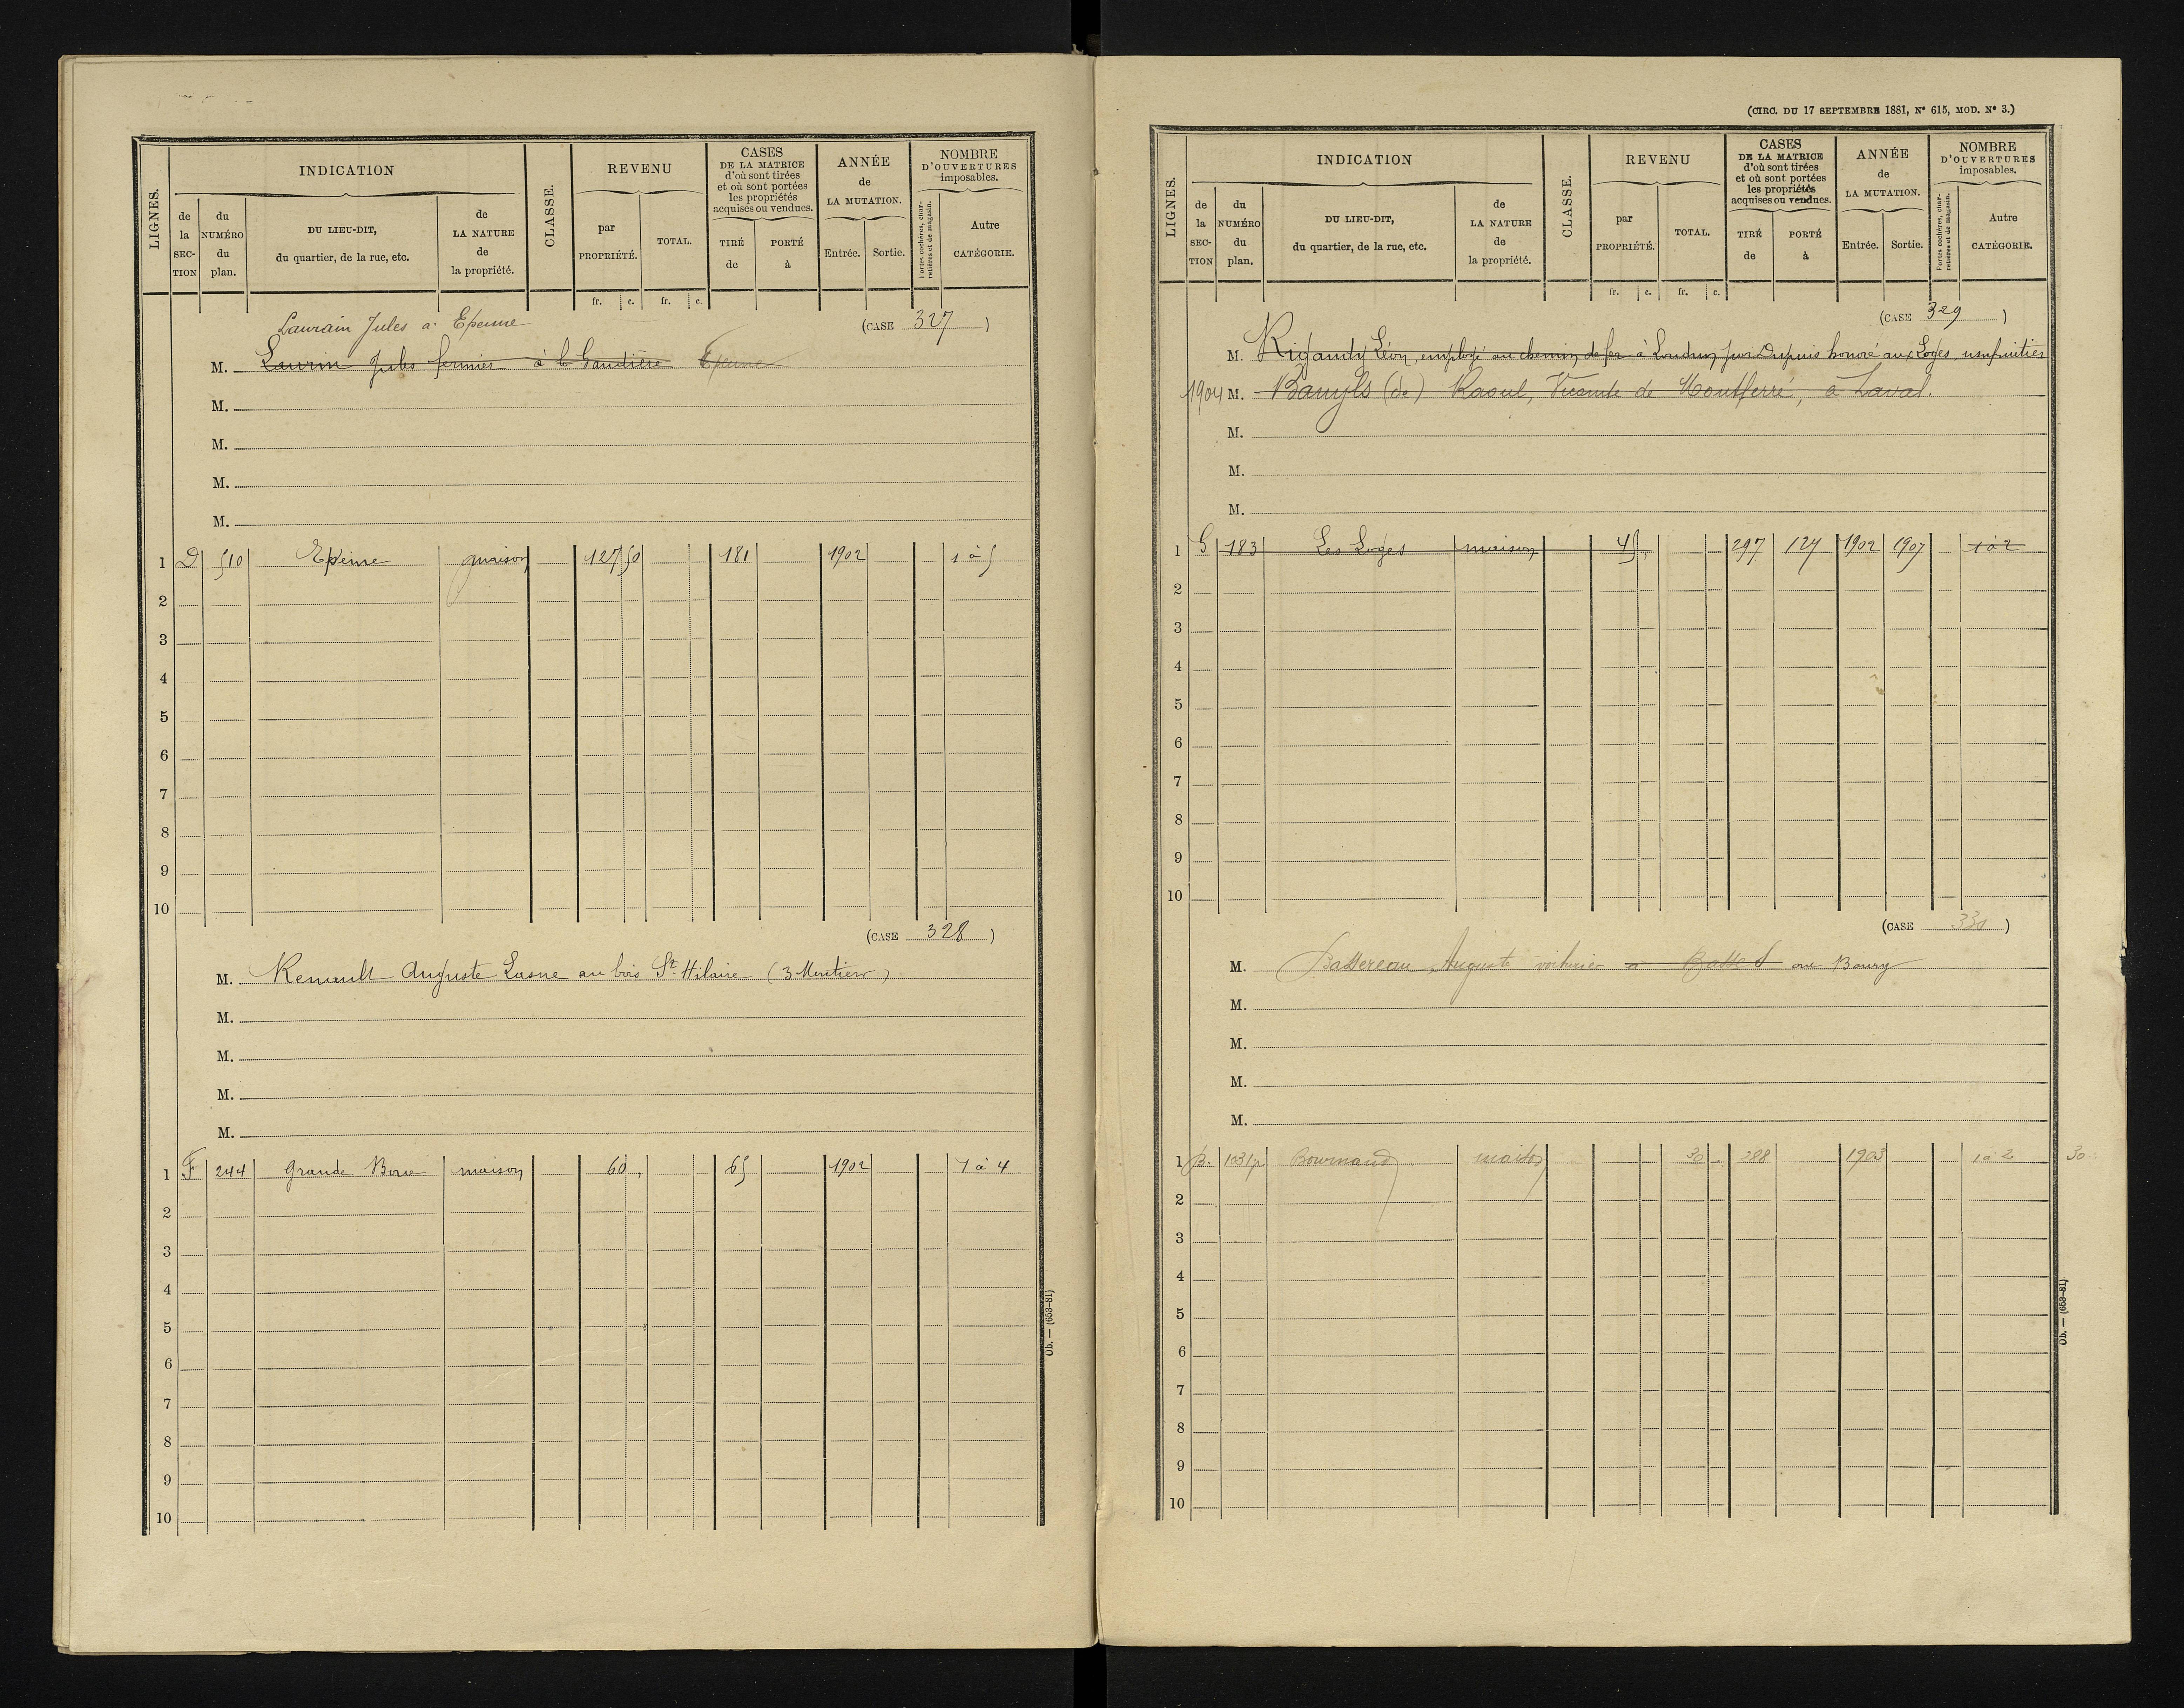 LIGNES.
INDICATION
de la SECTION
du NUMÉRO du plan.
DU LIEU-DIT, du quartier, de la rue, etc.
de LA NATURE de la propriété.
CLASSE.
REVENU
par PROPRIÉTÉ.
TOTAL.
CASES DE LA MATRICE d'où sont tirées et où sont portées les propriétés acquises ou vendues.
TIRÉ de
PORTÉ à
ANNÉE de LA MUTATION.
Entrée.
Sortie.
NOMBRE D'OUVERTURES imposables.
Portes cochères, charretières et de magasin.
Autre CATÉGORIE.
fr. c. fr. c.
Laurain Jules à Epenne
(CASE 327)
M. Laurin Jules fermier à la Gaudière Epenne
M.
M.
M.
M.
1 D 510 Epeine maison 127 50 181 1902 1 à 5
2
3
4
5
6
7
8
9
10
(CASE 328)
M. Renault Auguste Lasne au bois St Hilaire (3 Moutiers)
M.
M.
M.
M.
1 F 244 Grande Boue maison 60, 65 1902 1 à 4
2
3
4
5
6
7
8
9
10
Ob. — (653-81)
(CIRC. DU 17 SEPTEMBRE 1881, N° 615, MOD. N° 3.)
LIGNES.
INDICATION
de la SECTION
du NUMÉRO du plan.
DU LIEU-DIT, du quartier, de la rue, etc.
de LA NATURE de la propriété.
CLASSE.
REVENU
par PROPRIÉTÉ.
TOTAL.
CASES DE LA MATRICE d'où sont tirées et où sont portées les propriétés acquises ou vendues.
TIRÉ de
PORTÉ à
ANNÉE de LA MUTATION.
Entrée.
Sortie.
NOMBRE D'OUVERTURES imposables.
Portes cochères, charretières et de magasin.
Autre CATÉGORIE.
fr. c. fr. c.
(CASE 329)
M. Rigandy Léon, employé au chemin de fer à Loudun pour Dupuis honoré aux Loges, usufruitier
1904 M. Banyls (de) Raoul, Vicomte de Montferré, à Laval.
M.
M.
M.
1 G 183 Les Loges maison 45, 297 127 1902 1907 1 à 2
2
3
4
5
6
7
8
9
10
(CASE 330)
M. Bassereau Auguste voiturier à Basses au Bourg
M.
M.
M.
M.
1 B. 1031p Bournand maison 30 . 288 1903 1 à 2 30.
2
3
4
5
6
7
8
9
10
Ob. — (653-81)